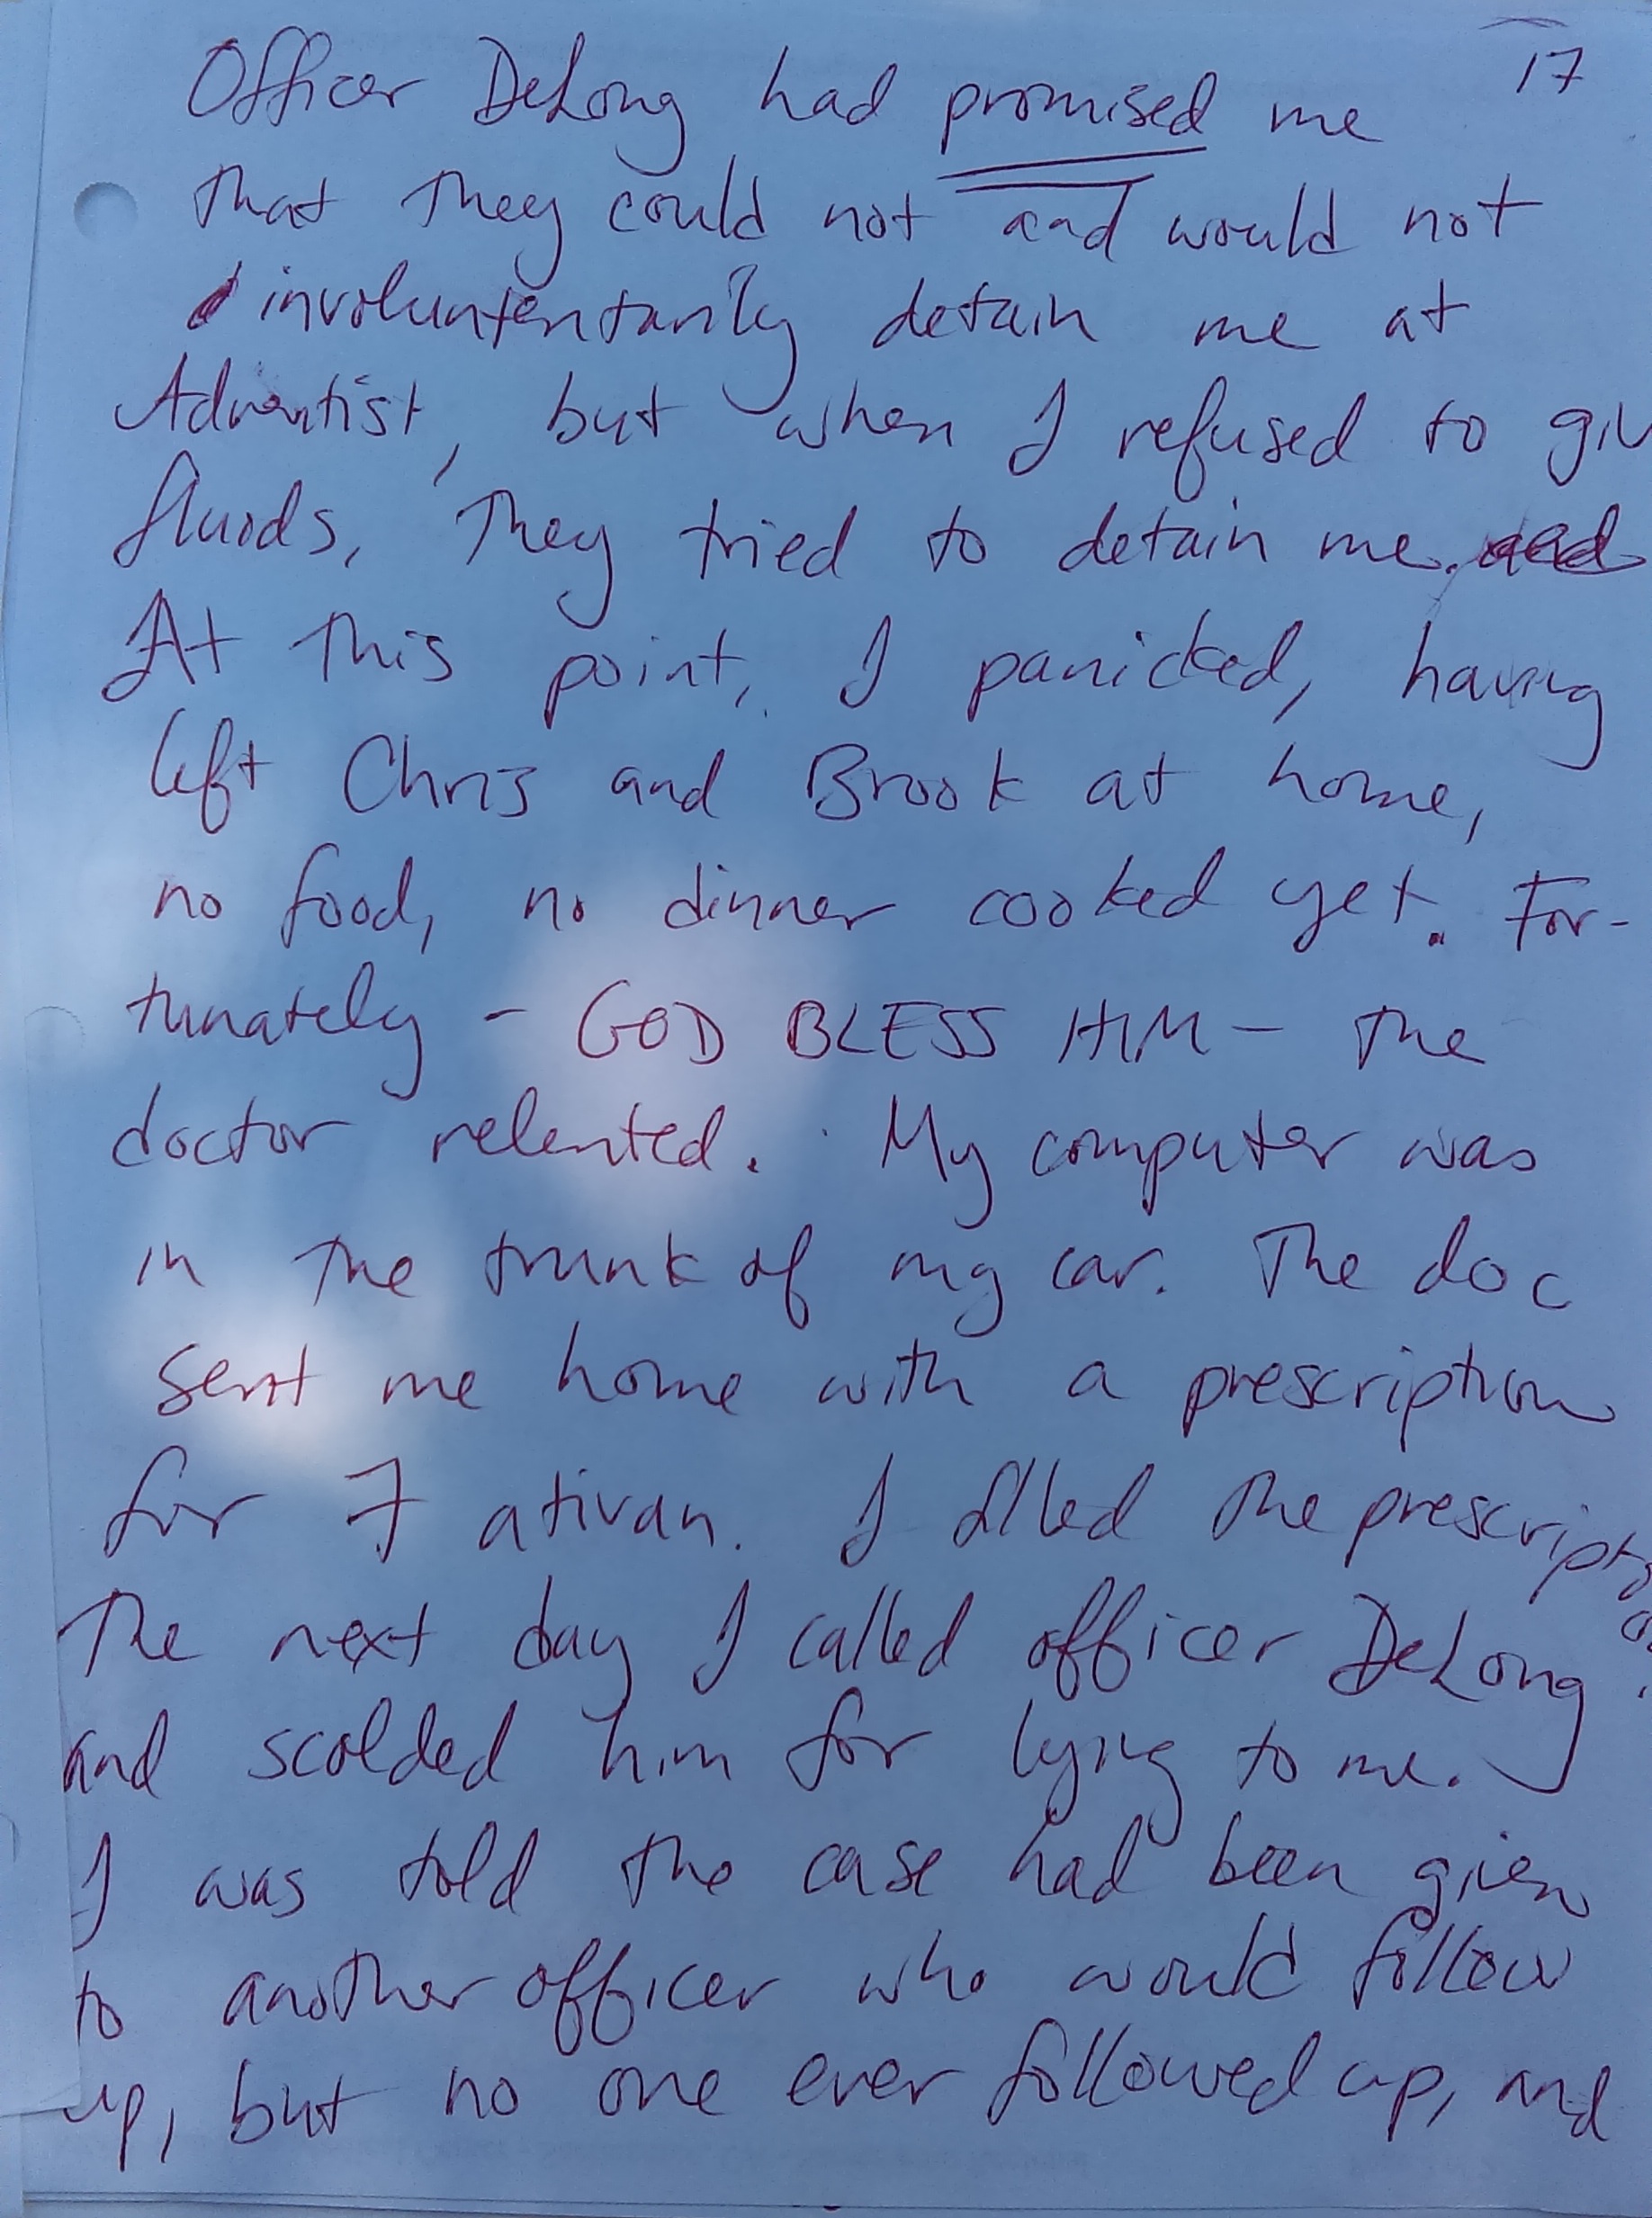 17
Officer DeLong had promised me
that they could not and would not
involuntentarily detain me at
Adventist, but when I refused to giv
fluids, they tried to detain me.
At this point, I panicked, having
left Chris and Brook at home,
no food, no dinner cooked yet. For-
tunately - GOD BLESS HIM - the
doctor relented. My computer was
in the trunk of my car. The doc
sent me home with a prescription
for 7 ativan. I filled the prescript
The next day I called officer DeLong
and scolded him for lying to me.
I was told the case had been given
to another officer who would follow
up, but no one ever followed up, and